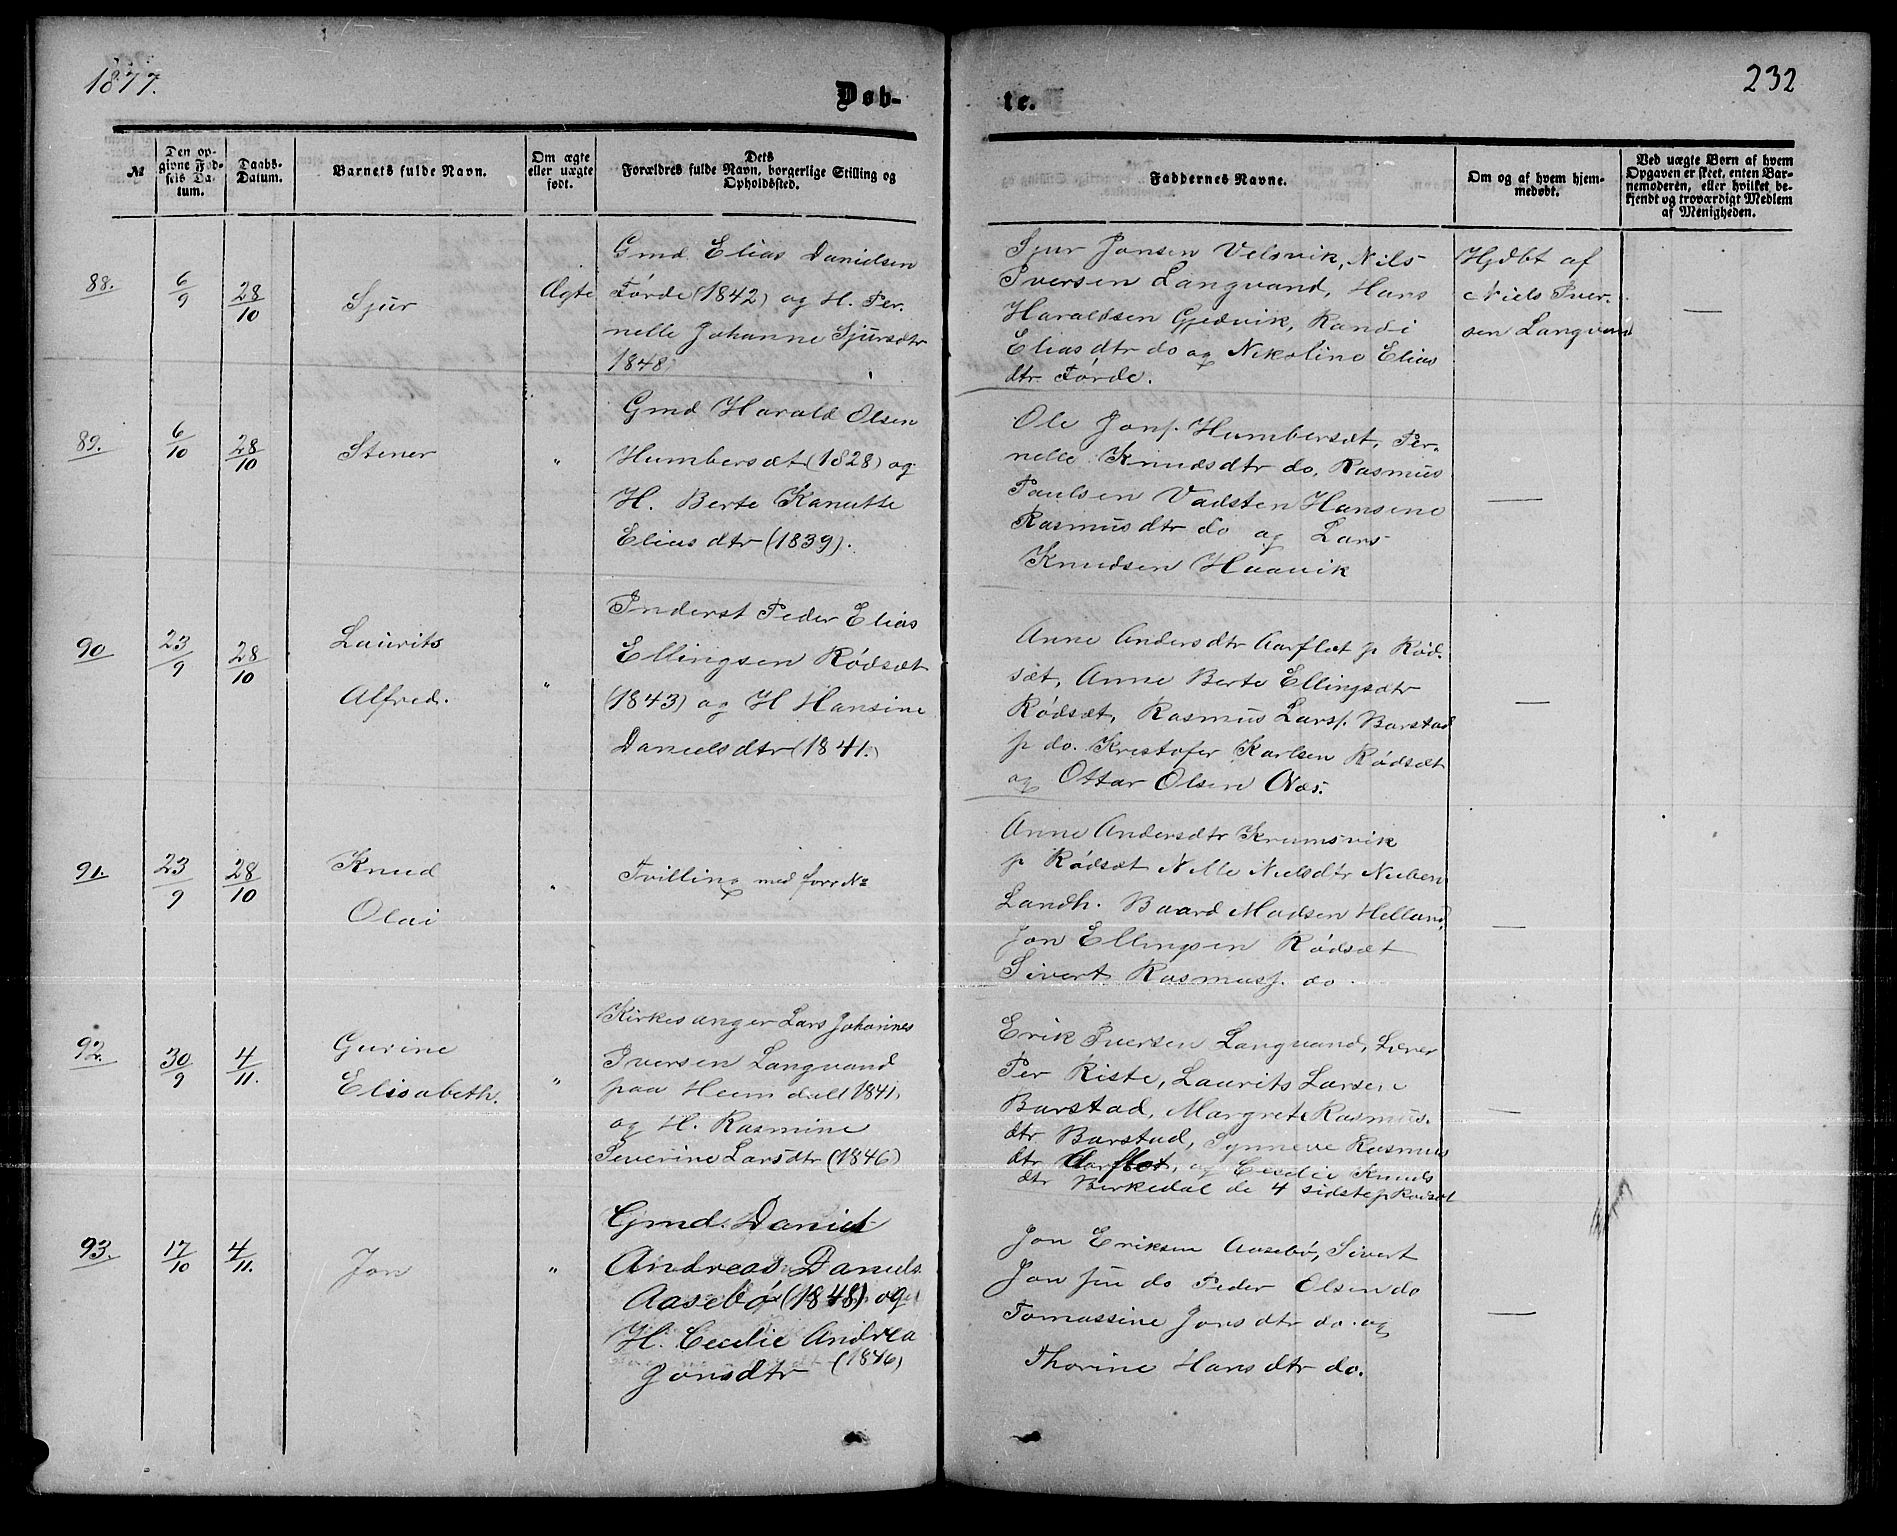 1877.
232
Døb-
te.
№
Den op-
givne Fød-
sels Da-
tum.
Daabs-
Datum.
Barnets fulde Navn.
Om ægte
eller uægte
født.
Dets
Forældres fulde Navn, borgerlige Stilling og
Opholdssted.
Faddernes Navne.
Om og af hvem hjem-
medøbt.
Ved uægte Børn af hvem
Opgaven er skeet, enten Bar-
nemoderen, eller hvilket be-
kjendt og troværdigt Medlem
af Menigheden.
88.
6/9
28/10
Sjur
Ægte
Gmd Elias Danielsen
Förde (1842) og H. Per-
nelle Johanne Sjursdtr
1848)
Sjur Jonsen Velsvik, Nils
Iversen Langvand, Hans
Haraldsen Gjedvik, Randi
Eliasdtr do og Nikoline Elias
dtr Förde.
Hjdbt af
Niels Iver-
sen Langvand
—
89.
6/10
28/10
Stener
"
Gmd Harald Olsen
Humbersæt (1828) og
H. Berte Kanutte
Eliasdtr (1839).
Ole Jons. Humbersæt, Per-
nelle Knudsdtr do, Rasmus
Paulsen Vadsten Hansine
Rasmusdtr do og Lars
Knudsen Haavik
—
90
23/9
28/10
Laurits
Alfred.
"
Inderst Peder Elias
Ellingsen Rödsæt
(1843) og H Hansine
Danielsdtr (1841.)
Anne Andersdtr Aarflot p Röd-
sæt, Anne Berte Ellingsdtr
Rödsæt, Rasmus Lars. Barstad
p do. Kristofer Karlsen Rödsæt
og Ottar Olsen Næs.
—
91.
23/9
28/10
Knud
Olai
"
Tvilling med forr №
Anne Andersdtr Krumsvik
p Rödsæt Nille Nielsdtr
Landh. Baard Madsen Helland,
Jon Ellingsen Rödsæt
Sivert Rasmus. do
—
92.
30/9
4/11.
Gurine
Elisabeth.
"
Kirkesanger Lars Johannes
Iversen Langvand
paa Heimdall 1841)
og H. Rasmine
Severine Larsdtr (1846)
Erik Iversen Langvand, Lærer
Per Riste, Laurits Larsen
Barstad, Margrete Rasmus-
dtr Barstad, Synneve Rasmus
dtr Aarflot, og Cecilie Knuds
dtr Birkedal de 4 sidste p Rødsæt
—
93.
17/10
4/11.
Jon
"
Gmd. Daniel
Andreas Daniels.
Aasebø (1848) og
H. Cecilie Andrea
Jonsdtr (1846)
Jon Eriksen Aasebø, Sivert
Jonsen do Peder Olsen do
Tomassine Jonsdtr do. og
Thorine Hansdtr do.
—